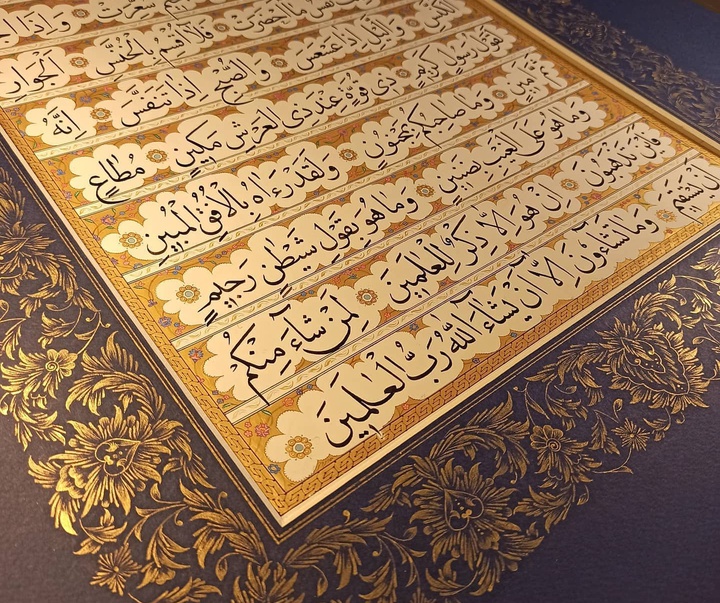 سُعِّرَتْ وَاِذَا
نَفْسٌ مَٓا اَحْضَرَتْ فَلَٓا اُقْسِمُ بِالْخُنَّسِ اَلْجَوَارِ
الْكُنَّسِ وَالَّيْلِ اِذَا عَسْعَسَ وَالصُّبْحِ اِذَا تَنَفَّسَ اِنَّهُ
لَقَوْلُ رَسُولٍ كَرِيمٍ ذِى قُوَّةٍ عِنْدَ ذِى الْعَرْشِ مَكِينٍ مُطَاعٍ
ثَمَّ اَمِينٍ وَمَا صَاحِبُكُمْ بِمَجْنُونٍ وَلَقَدْ رَاٰهُ بِالْاُفُقِ الْمُبِينِ
وَمَا هُوَ عَلَى الْغَيْبِ بِضَنِينٍ وَمَا هُوَ بِقَوْلِ شَيْطٰنٍ رَجِيمٍ
فَاَيْنَ تَذْهَبُونَ اِنْ هُوَ اِلَّا ذِكْرٌ لِلْعٰلَمِينَ لِمَنْ شَٓاءَ مِنْكُمْ
اَنْ يَسْتَقِيمَ وَمَا تَشَٓاؤُنَ اِلَّٓا اَنْ يَشَٓاءَ اللّٰهُ رَبُّ الْعٰلَمِينَ